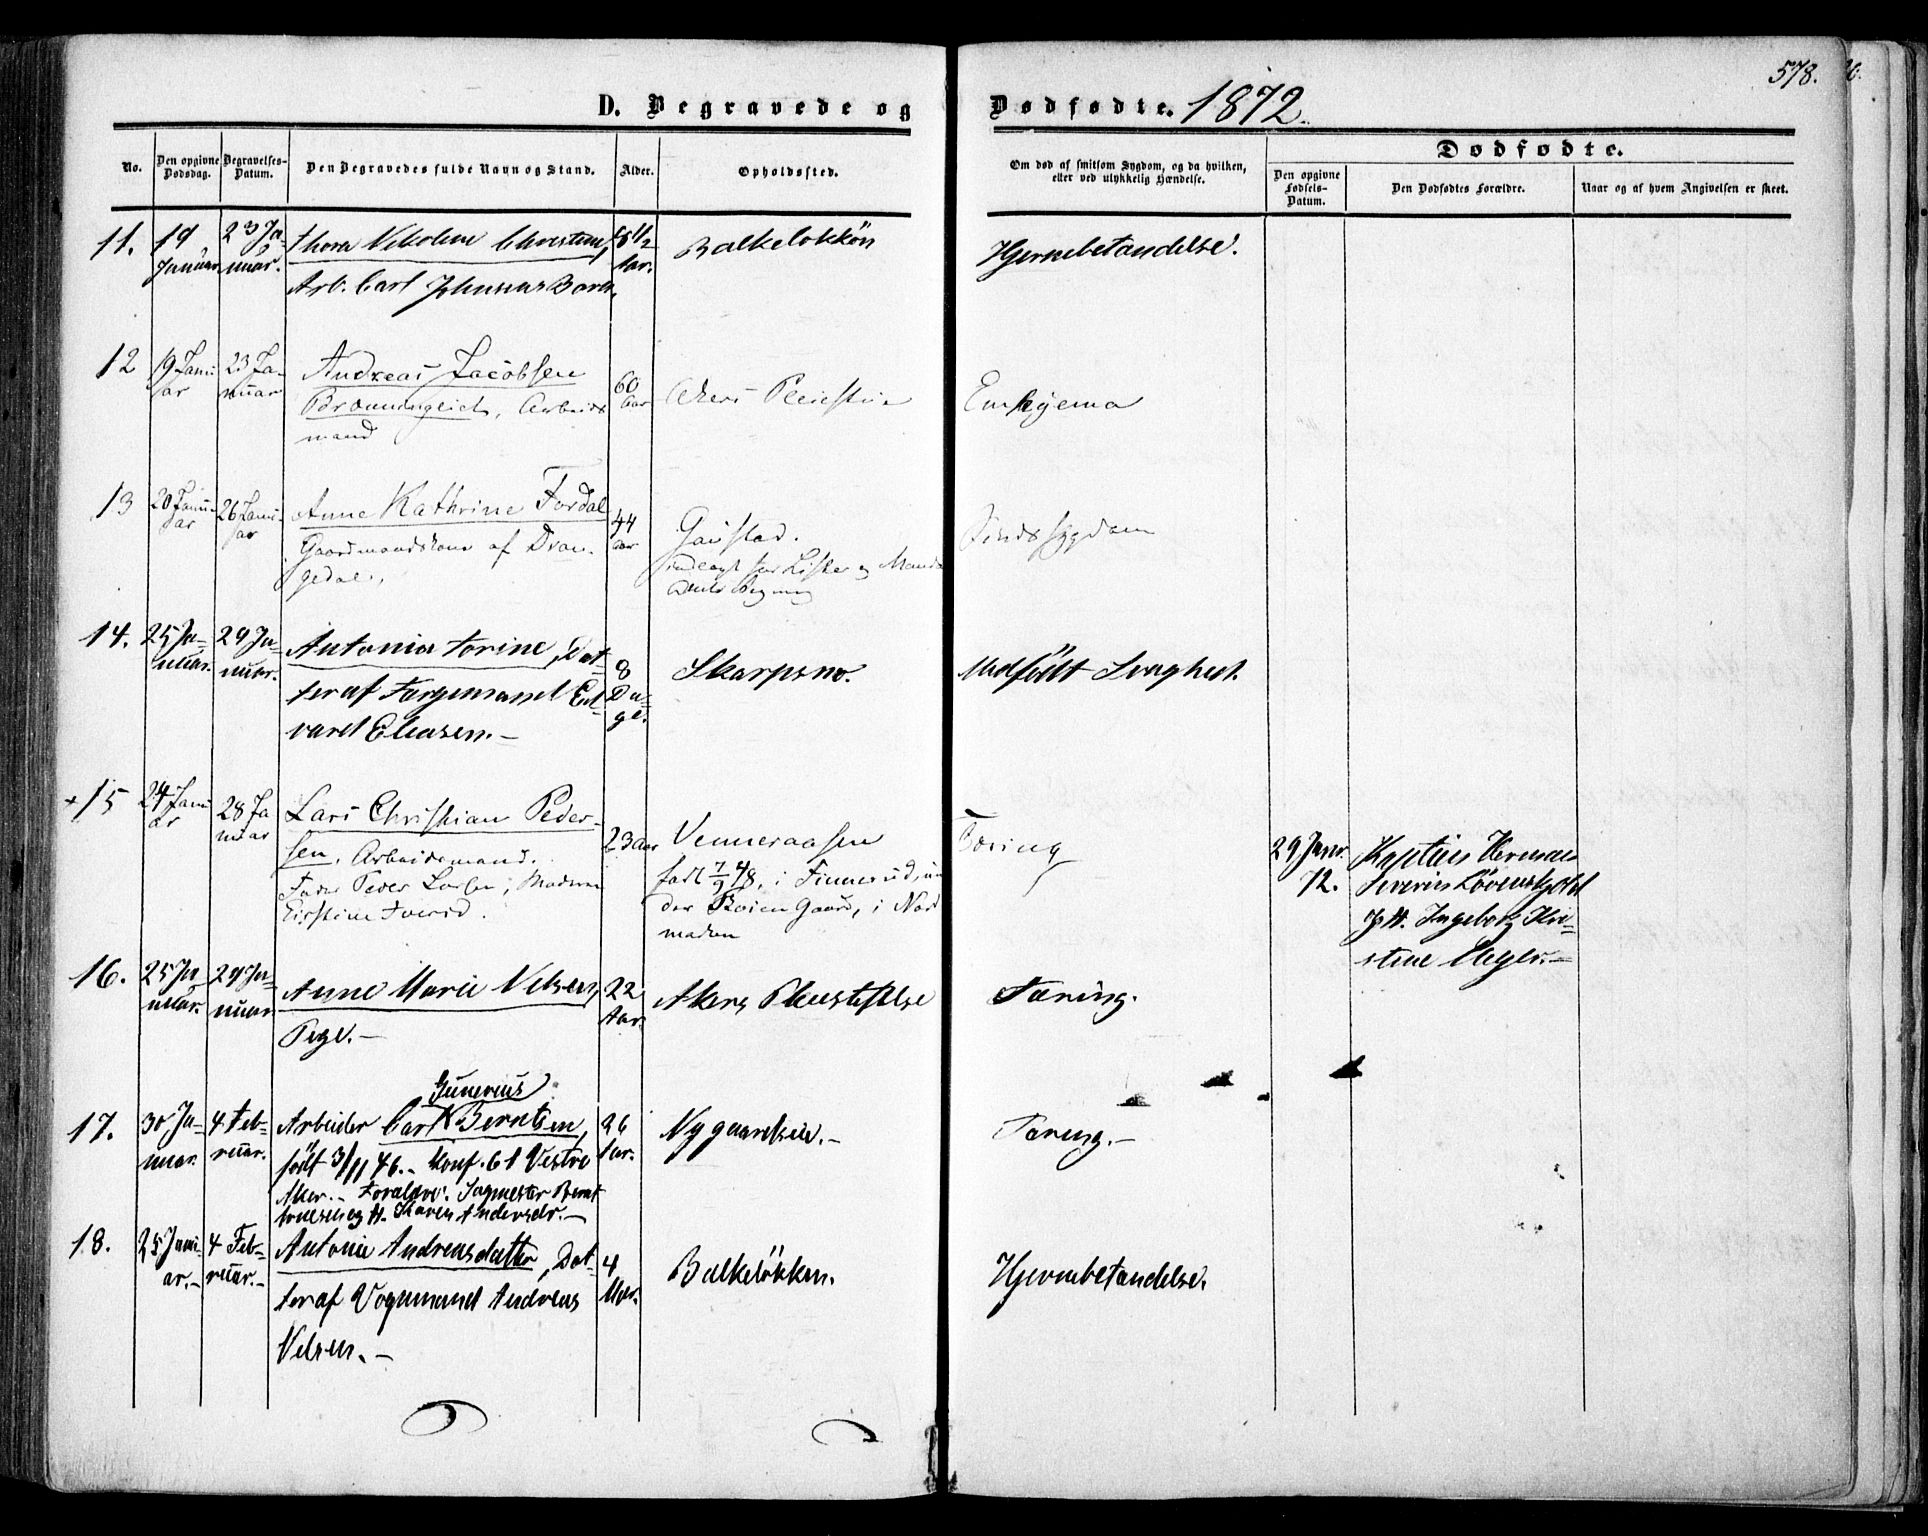 578.
D. Begravede og Dødfødte. 1872.
No.
Den opgivne Dødsdag.
Begravelses-Datum.
Den Begravedes fulde Navn og Stand.
Alder.
Opholdssted.
Om død af smitsom Sygdom, og da hvilken,
eller ved ulykkelig Hændelse.
Dødfødte.
Den opgivne Fødsels-Datum.
Den Dødfødtes Forældre.
Naar og af hvem Angivelsen er skeet.
11. 19 Januar. 23 Januar. Thora Nikoline Christine,
Arb. Carl Johnsens Barn.
Aar.
Balkeløkkön
Hjernebetændelse.
12 19 Januar 23 Januar Andreas Jacobsen
Arbeids
mand
60 Aar
Akers Pleiestue
Empyema
13 20 Januar 26 Januar Anne Kathrine Fordal
Gaardmandskone af Dran-
gedal.
44 Aar
Gaustad.
indlagt for Lister og Mandal
Sindssygdom
14. 25 Januar. 29 Januar. Antonia Torine, Dat-
ter af Fargemand Ed-
vard Eliasen.-
8 Dage.
Skarpsno.
Medfödt Svaghed.
+15 24 Januar 28 Januar Lars Christian Peder-
sen, Arbeidsmand.
Fader Peder Larsen, Moderen
Kirstine
23 Aar
Venneraasen
født 7/9 48, i Finnerud, un
der Gaard, i Nord
marken
Tæring
29 Janr. 72.
Kaptein Herman
Severin Løvenskjold
og H. Ingeborg Kri-
stine Meyer.-
16. 25 Januar. 29 Januar. Anne Marie Nilsen,
Pige.-
22 Aar.
Akers Pleiestiftelse
Tæring.
17. 30 Januar. 4 Februar. Gunerius
Arbeider Carl Berntsen,
født 3/11 46.- Konf. 61 Vestre
Aker.- Forældre: Sagmester Bernt
og H. Karen Andersdr.-
26 Aar.
Tæring.-
18. 25 Januar.- 4 Februar.- Antonie Andreasdatter, Dat-
ter af Vognmand Andreas
Nilsen.-
4 Mdr.
Balkeløkken.
Hjernebetændelse.